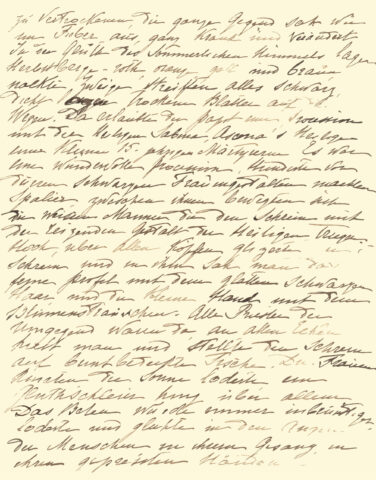 zu vertrocknen, die ganze Gegend sah wie
im Fieber aus, ganz krank und verändert
In der Gluth des Sommerlichen Himmels lagen
Herbstberge - roth, orange gelb und braun
nackte, Zweige Streifen alles schwarz
dicht trockene Blätter auf d.
Wege. Da erlaubte der papst eine procession
mit der Heiligen Sabina, Ascona's Heilige
einer kleinen 15-jährigen Märtyrerin. Es war
eine wundervolle procession. Hunderte von
dürren schwarzen Frauengestalten machten
Spalier, zwischen ihnen bewegten sich
die weissen Männer die den Schrein mit
der liegenden Gestalt der Heiligen trugen.
Hoch, über allen Köpfen der
Schrein und in ihm sah man das
feine profil mit dem glatten schwarzen
Haar, und die kleine Hand mit dem
Blumensträuschen. Alle Priester der
Umgegend waren da an allen Ecken
hielt man und stellte den Schrein
auf buntbedeckte Tische. Die Frauen
die Sonne loderte ein
Gluthschleier hing über allem
Das Beten wurde immer inbrünstiger
loderte und glühte in den Augen
der Menschen in ihrem Gesang, in
ihrem gepressten